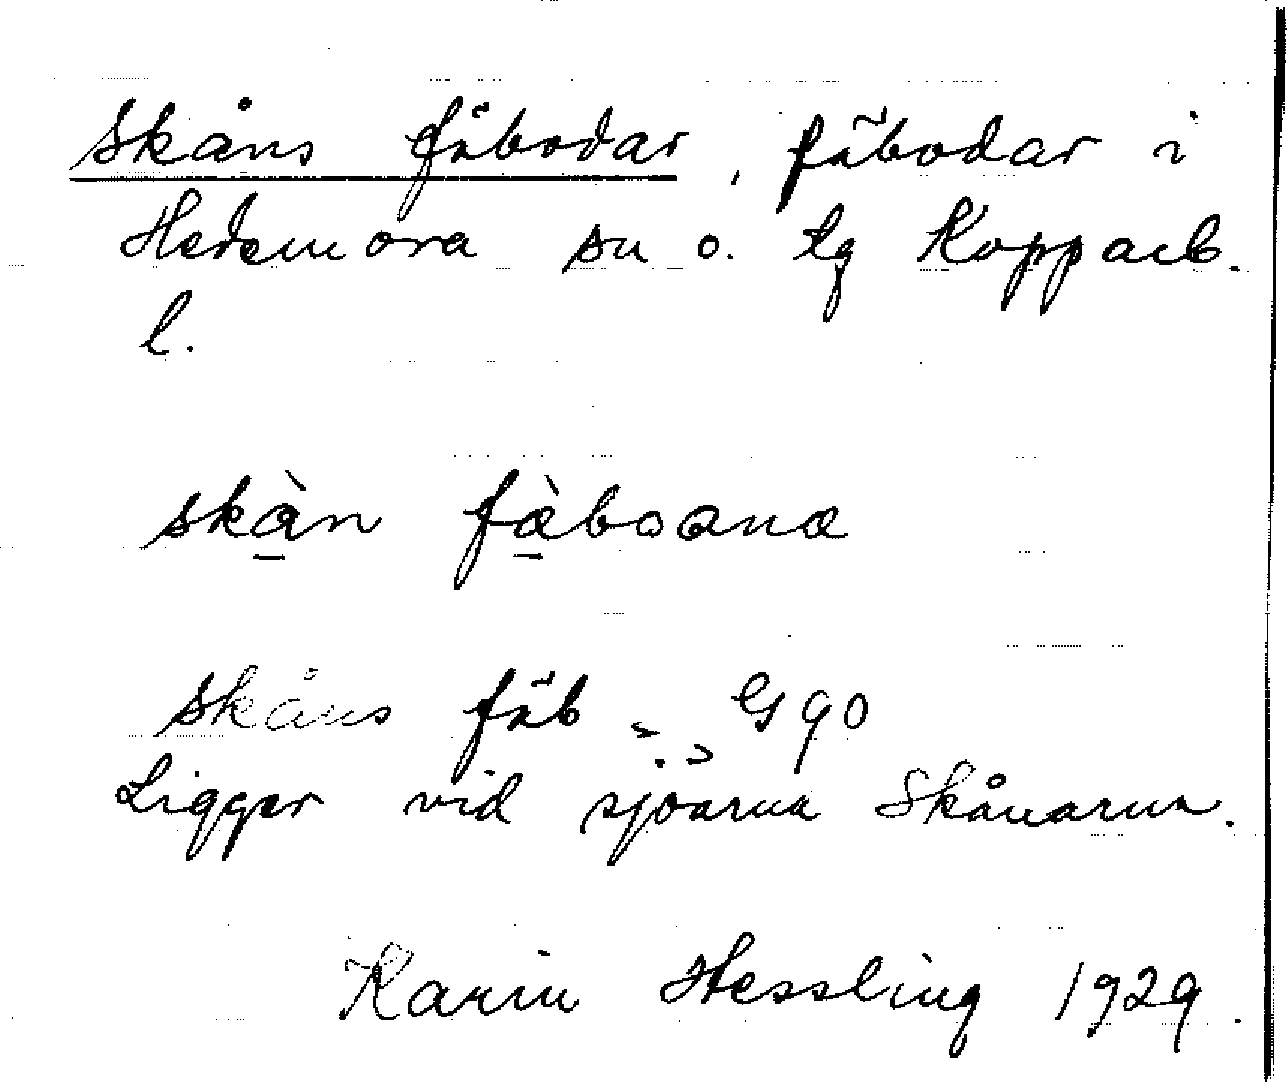 Skåns fäbodar, fäbodar i
Hedemora sn o. tg Kopparb.
l.
skàn fæ̀boana
Skåns fäb G 90
Ligger vid sjöarna Skånarna.
Karin Hessling 1929.